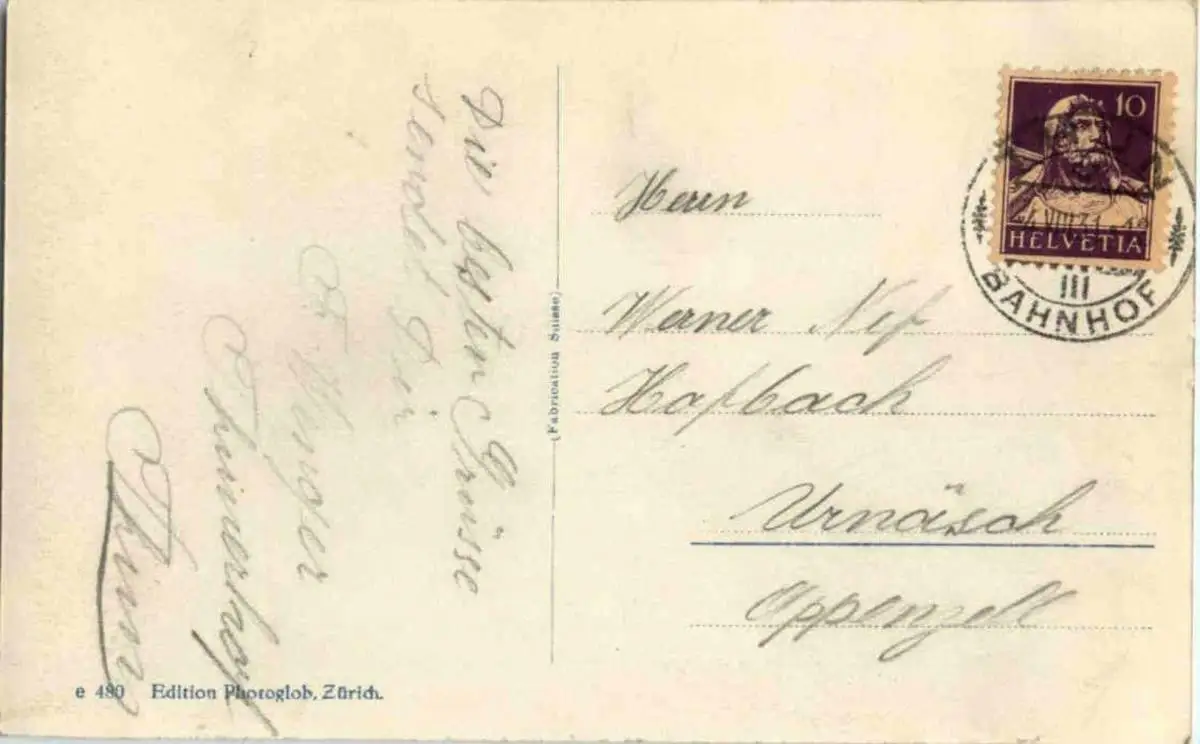 Die besten Grüsse
sendet Dir
Herrn
Werner Nef
Hofbach
Urnäsch
Appenzell
(Fabrication Suisse)
e 480 Edition Photoglob, Zürich.
10
HELVETIA
III
BAHNHOF